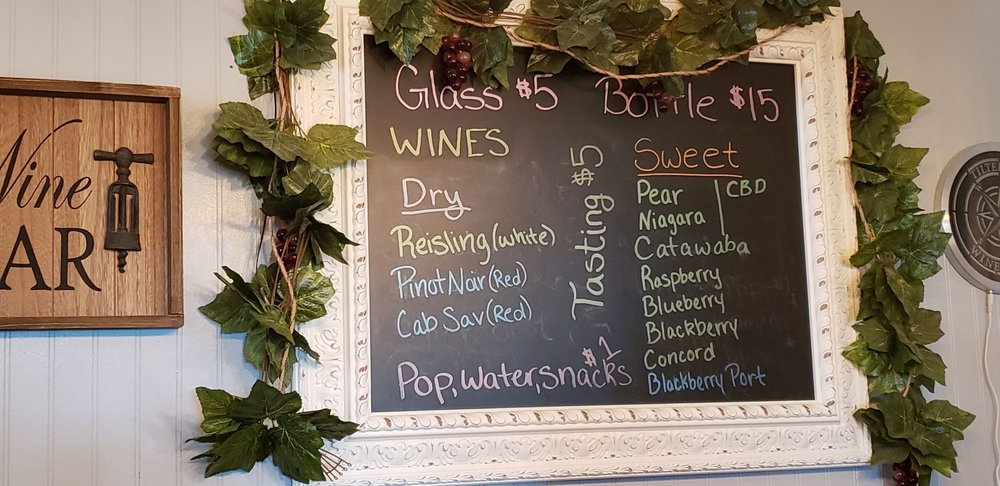 Wine
BAR
Glass $5
Bottle $15
WINES
Dry
Reisling (white)
Pinot Noir (Red)
Cab Sav (Red)
Pop, water, snacks $1
Tasting $5
Sweet
Pear
CBD
Niagara
Catawaba
Raspberry
Blueberry
Blackberry
Concord
Blackberry Port